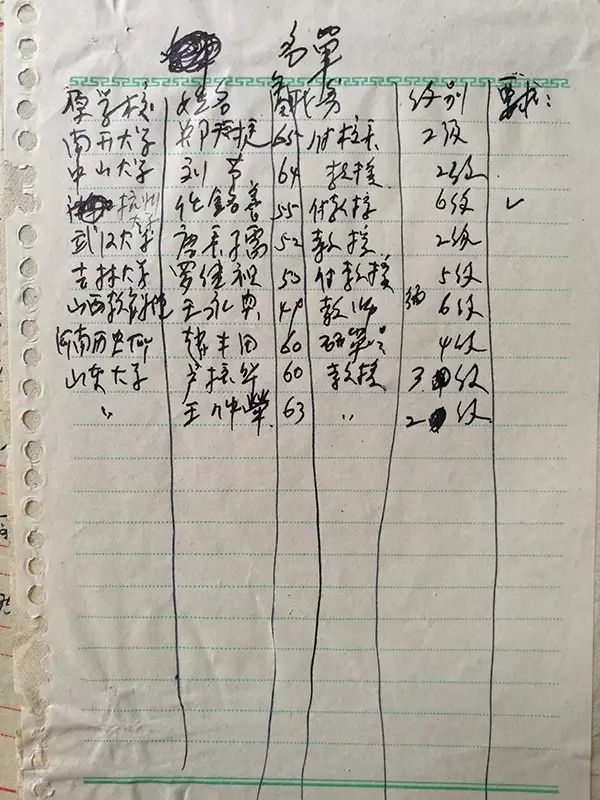 名單
原学校 姓名 职务 级别 要求:
南开大学 郑天挺 65 付校长 2级
中山大学 刘节 64 教授 2级
杭州大学 任銘善 55 付教授 6级 ✓
武汉大学 唐长孺 52 教授 2级
吉林大学 罗继祖 53 付教授 5级
山西教育学院 王永兴 49 教师 6级
河南历史所 赵丰田 60 研究员 4级
山东大学 卢振华 60 教授 3级
〃 王仲犖 63 〃 2级